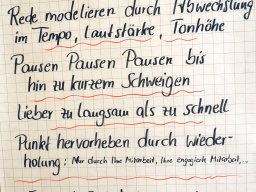 Rede modelieren durch Abwechslung
im Tempo, Lautstärke, Tonhöhe
Pausen Pausen Pausen bis
hin zu kurzem Schweigen
Lieber zu langsam als zu schnell
Punkt hervorheben durch wieder-
holung: Nur durch Ihre Mitarbeit, Ihre engagierte Mitarbeit,...